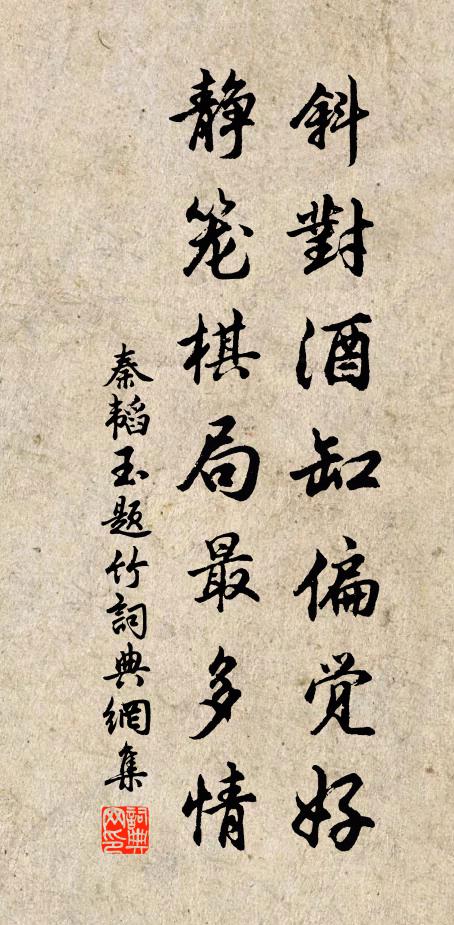 斜對酒缸偏觉好
静笼棋局最多情
秦韬玉题竹詞典網集
詞典网印